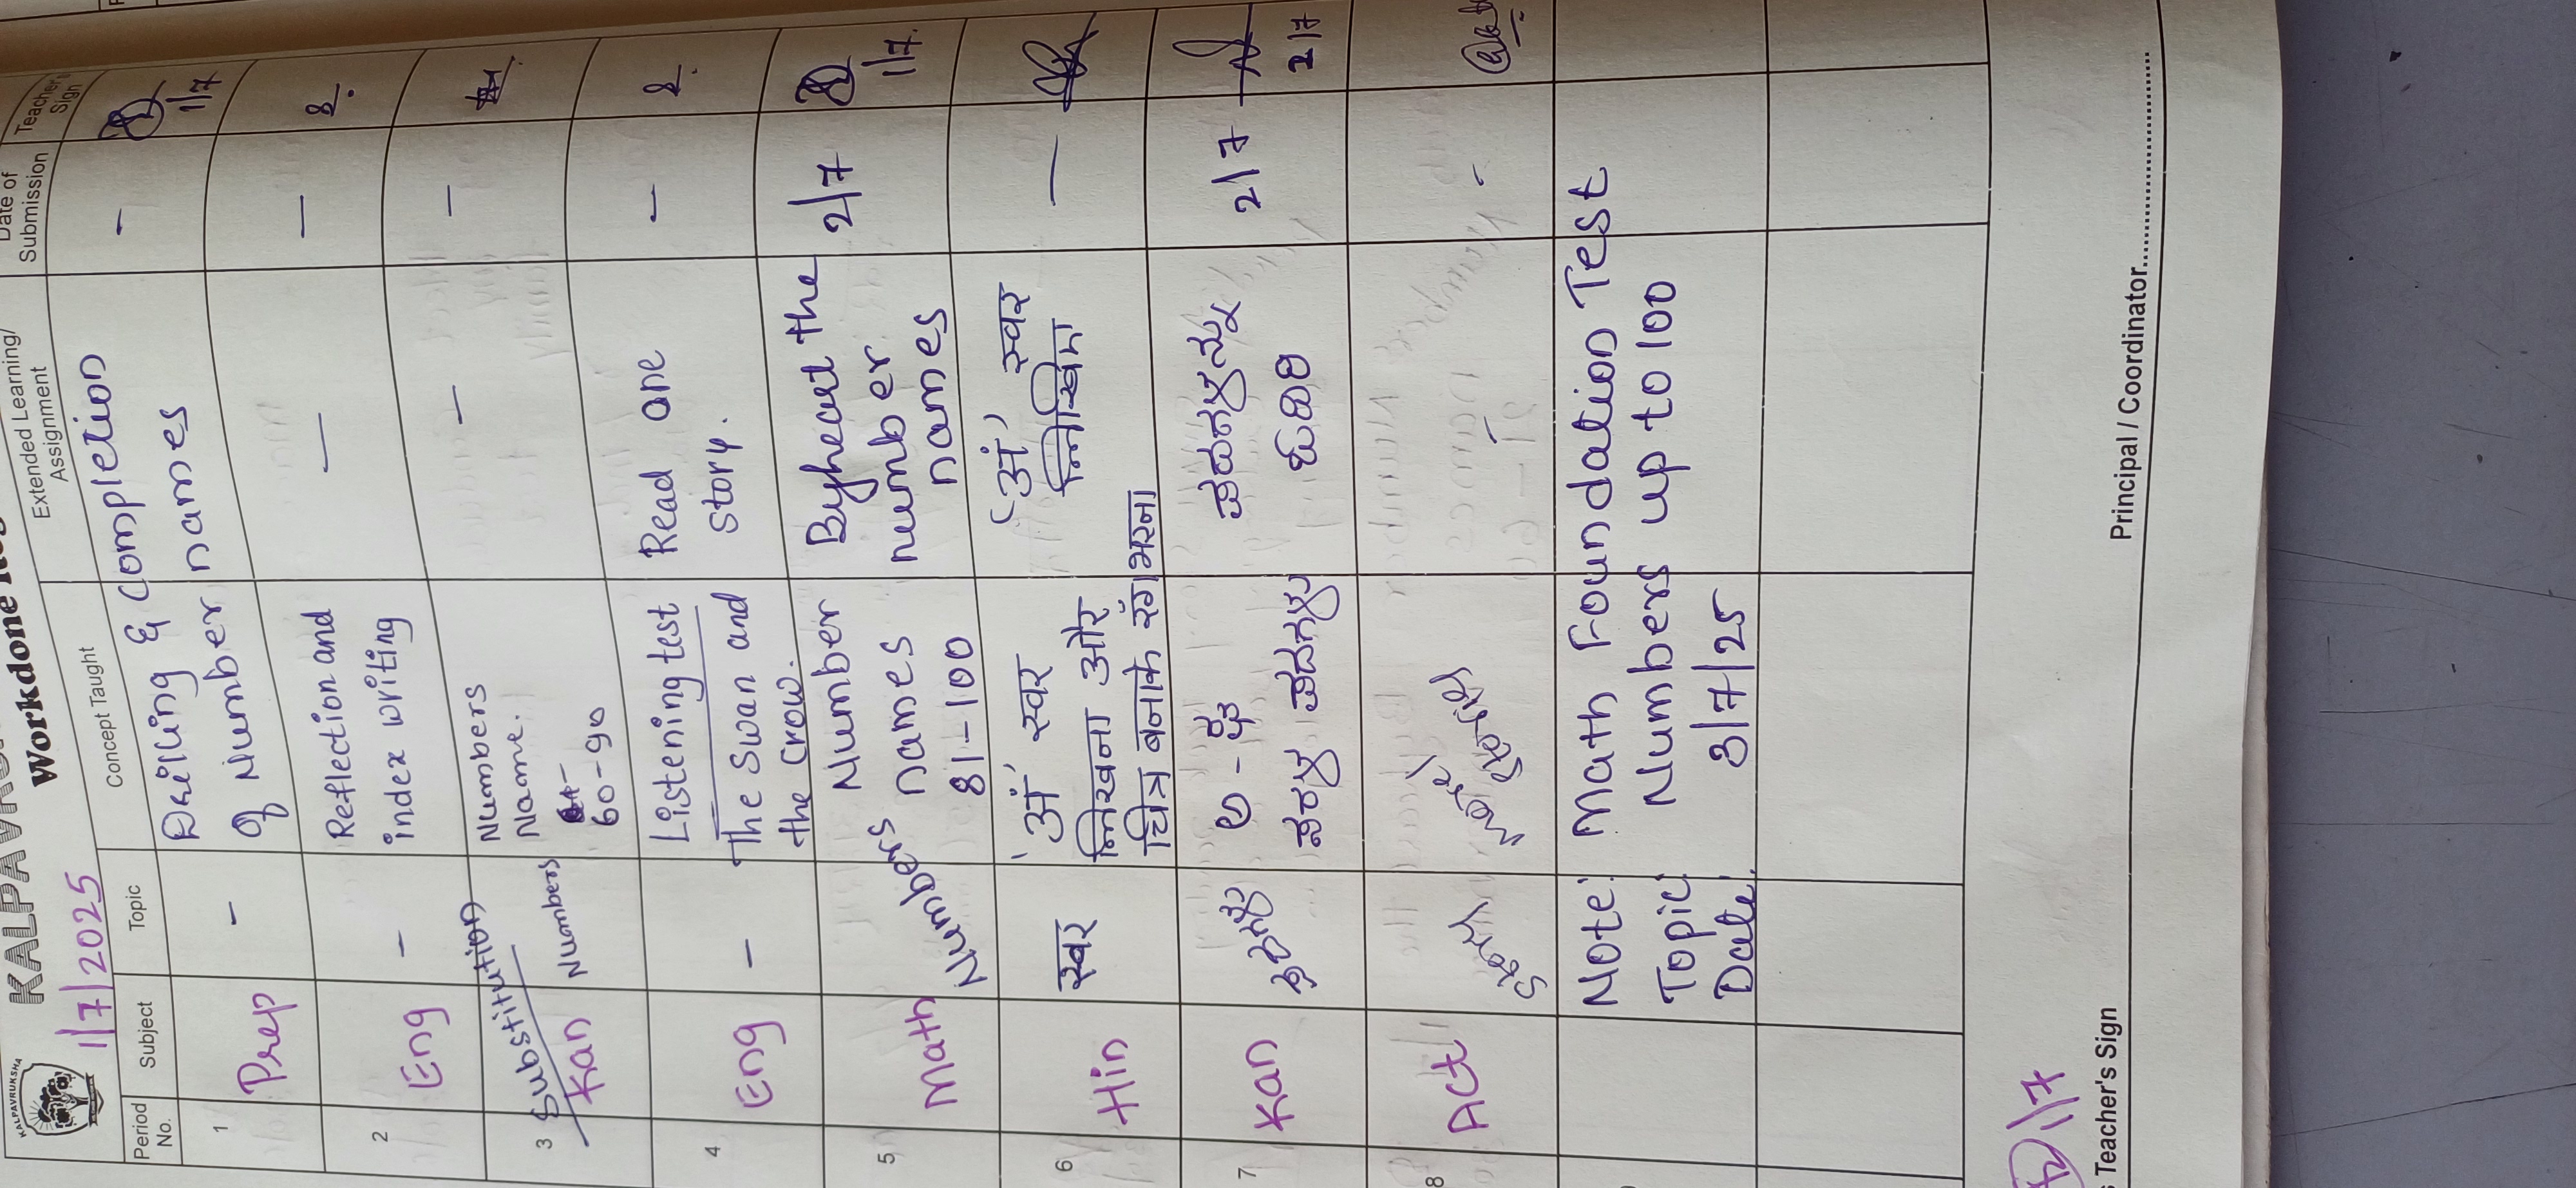 KALPAVRUKSHA
Workdone
1/7/2025
Period No.
Subject
Topic
Concept Taught
Extended Learning/ Assignment
Date of Submission
Teacher's Sign
1
Prep
-
Drilling & completion
of Number names
-
1/7
2
Eng
-
Reflection and
index writing
-
-
3
Substitution
Kan
Numbers
Numbers
Name.
60-90
-
-
4
Eng
-
Listening test
The Swan and
the Crow.
Read one
story.
-
5
Math
Numbers
Number
names
81-100
Byheart the
number
names
2/7
1/7.
6
Hin
स्वर
'अं' स्वर
लिखना और
चित्र बनाके रंग भरना
'अं' स्वर
लिखिए
-
7
Kan
ಅ - ಕ್ಷ
ಸರಳ ಪದಗಳು
ಪದಗಳನ್ನು
ಓದಿರಿ
2/7
2/7
8
Act
-
-
Note: Math Foundation Test
Topic: Numbers up to 100
Date: 3/7/25
1/7
Teacher's Sign
Principal / Coordinator